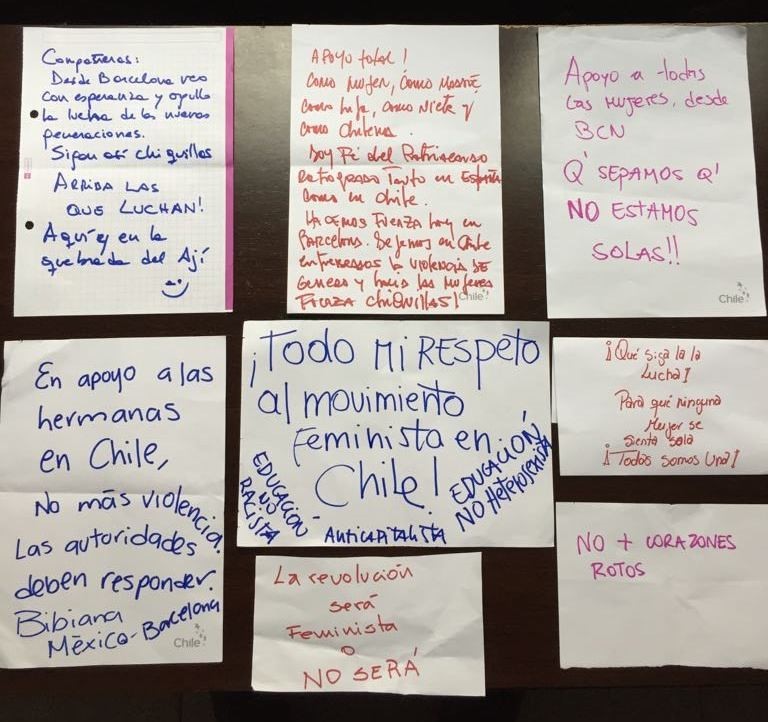 Compañeras:
Desde Barcelona veo
con esperanza y orgullo
la lucha de las nuevas
generaciones.
Sigan así chiquillas
ARRIBA LAS
QUE LUCHAN!
Aquí y en la
quebrada del Ají
APOYO TOTAL!
COMO MUJER, COMO MADRE
COMO hija, COMO Nieta y
COMO Chilena.
Soy del Patriarcado
Retrogrado Tanto en España
como en Chile.
HACEMOS FUERZA hoy en
Barcelona. en Chile
la violencia DE
Genero y hacia las Mujeres
FUERZA CHIQUILLAS!
Chile
Apoyo a todas
las mujeres, desde
BCN
Q' SEPAMOS Q'
NO ESTAMOS
SOLAS!!
Chile
En apoyo a las
hermanas
en Chile,
No más violencia.
Las autoridades
deben responder.
Bibiana
México-Barcelona
Chile
¡Todo MI RESPETO
al movimiento
Feminista en
Chile!
EDUCACIÓN
NO
RACISTA
ANTICAPITALISTA
EDUCACIÓN
NO Heterosexista
¡Qué siga la la
Lucha!
Para qué ninguna
Mujer se
sienta sola
¡Todas somos Una!
La revolución
será
Feminista
o
NO SERÁ
NO + CORAZONES
ROTOS